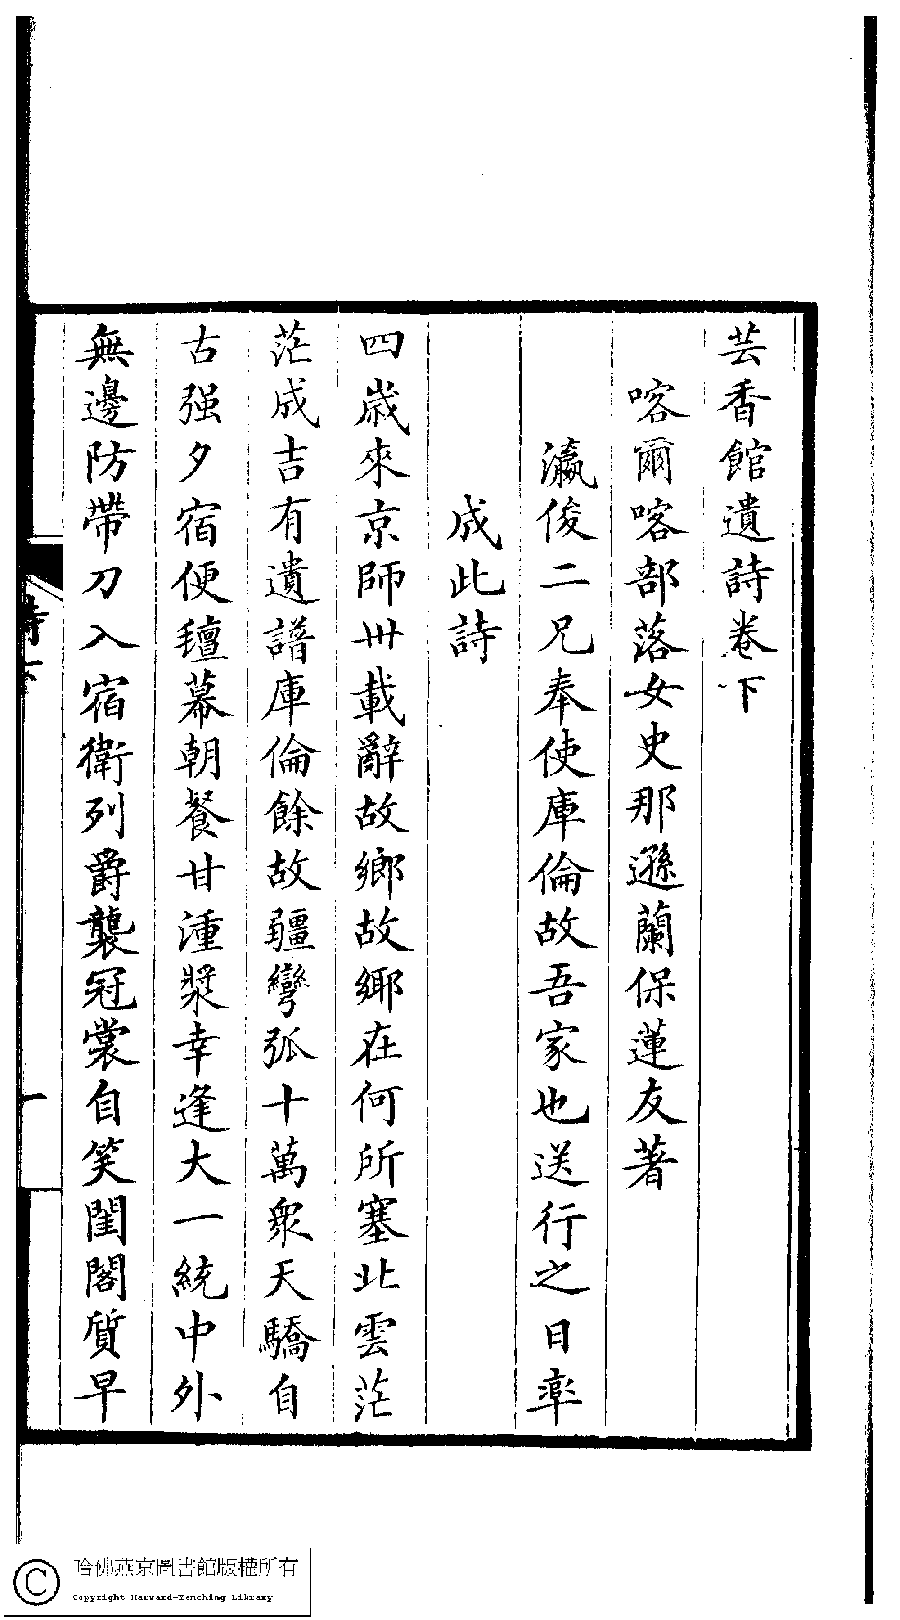 芸香館遺詩卷下
喀爾喀部落女史那遜蘭保蓮友著
瀛俊二兄奉使庫倫故吾家也送行之日率
成此詩
四歲來京師卅載辭故鄉故鄉在何所塞北雲茫
茫成吉有遺譜庫倫餘故疆彎弧十萬衆天驕自
古强夕宿便氊幕朝餐甘湩漿幸逢大一統中外
無邊防帶刀入宿衛列爵襲冠裳自笑閨閣質早
哈佛燕京圖書館版權所有
Copyright Harvard-Yenching Library